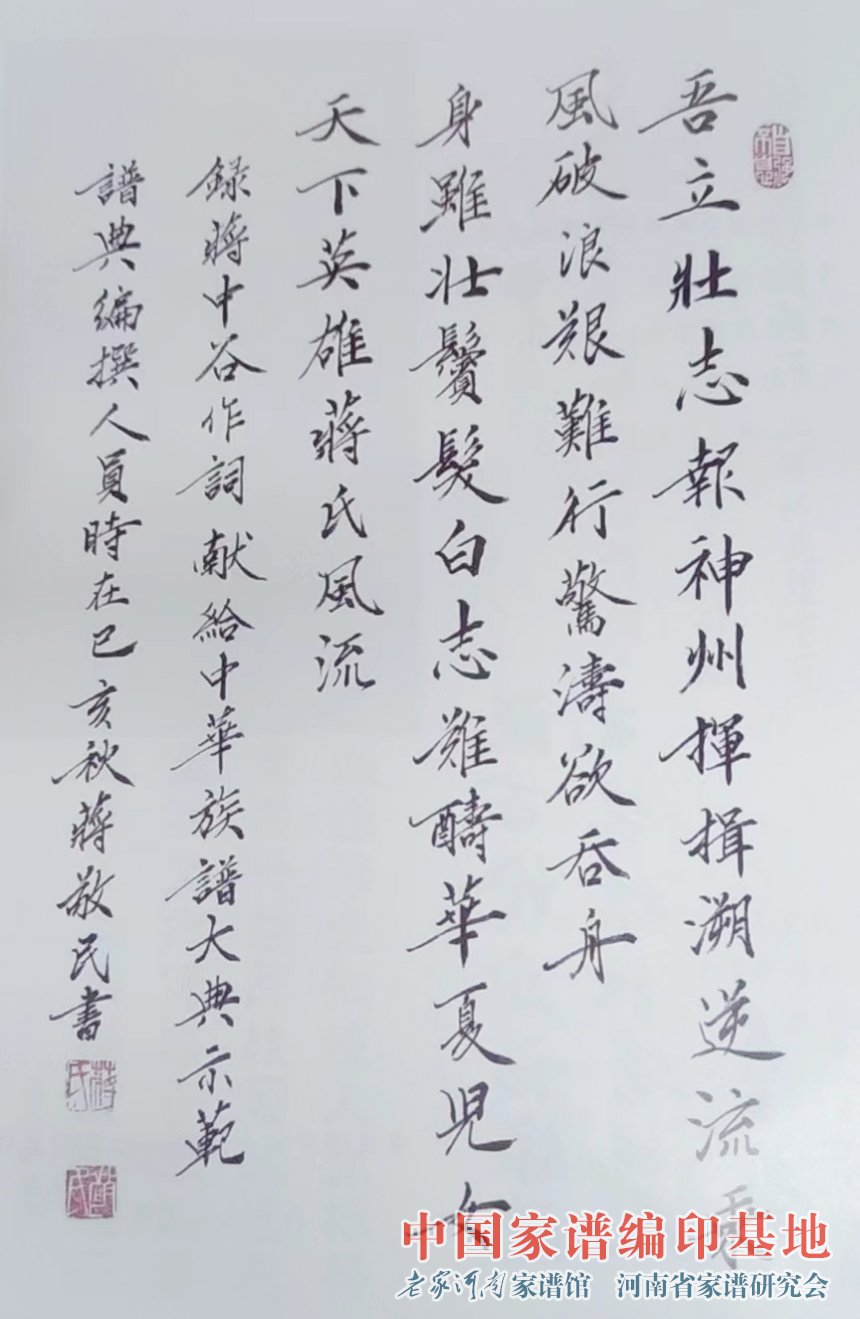 吾立壯志報神州揮揖溯逆流乘
風破浪艱難行驚濤欲吞舟
身雖壯鬢髮白志難酬華夏児女
天下英雄蔣氏風流
録蔣中谷作詞献給中華族譜大典示範
譜典編撰人員時在已亥秋蔣敬民書
蔣氏
中国家谱编印基地
老家河南家谱馆 河南省家谱研究会